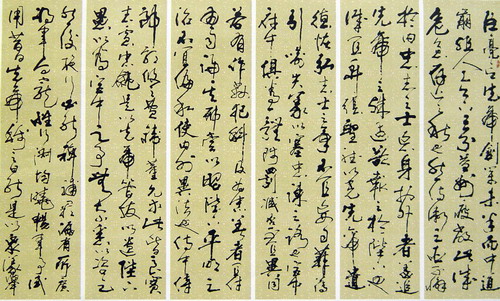 臣亮言先帝創業未半而中道
崩殂今天下三分益州疲敝此誠
危急存亡之秋也然侍衛之臣不懈
於內忠志之士忘身於外者蓋追
先帝之殊遇欲報之於陛下也
誠宜開張聖聽以光先帝遺
德恢弘志士之氣不宜妄自菲薄
引喻失義以塞忠諫之路也宮中
府中俱為一體陟罰臧否不宜異同
若有作奸犯科及為忠善者宜付
有司論其刑賞以昭陛下平明之
治不宜偏私使內外異法也侍中侍
郎郭攸之費禕董允等此皆良實
志慮忠純是以先帝簡拔以遺陛下
愚以為宮中之事事無大小悉以咨之
然後施行必能裨補闕漏有所廣益
將軍向寵性行淑均曉暢軍事試
用於昔日先帝稱之曰能是以眾議舉